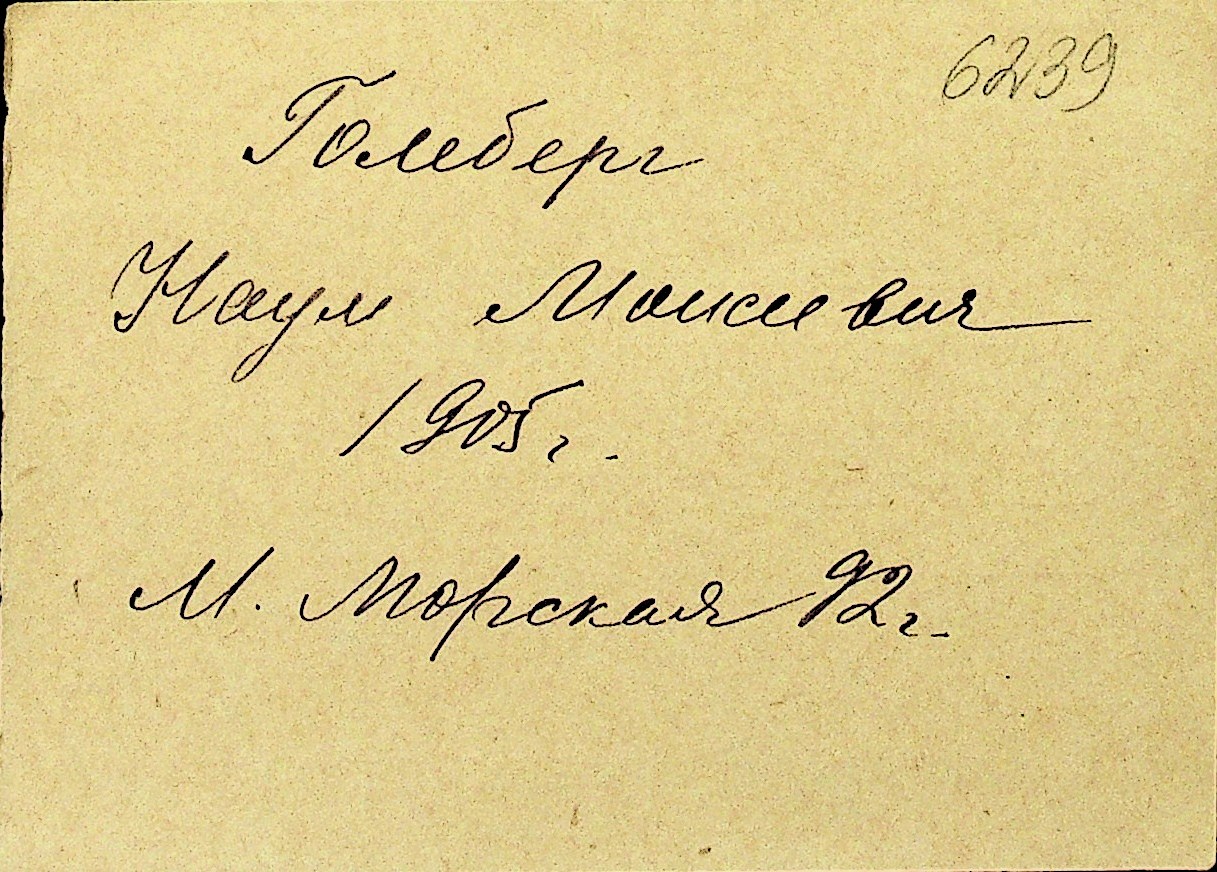 6239
Голеберг
Наум Моисеевич
1905г.
М. Морская 92г.